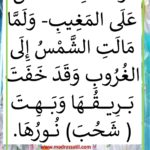 عَلَى المَغِيبِ- وَلَمَّا
مَالَتِ الشَّمْسُ إِلَى
الغُرُوبِ وَقَدَ خَفَتَ
بَرِيـقُـهَا وَبَـهِـتَ
( شَحُبَ) نُـورُهَا.
www.madrassatii.com